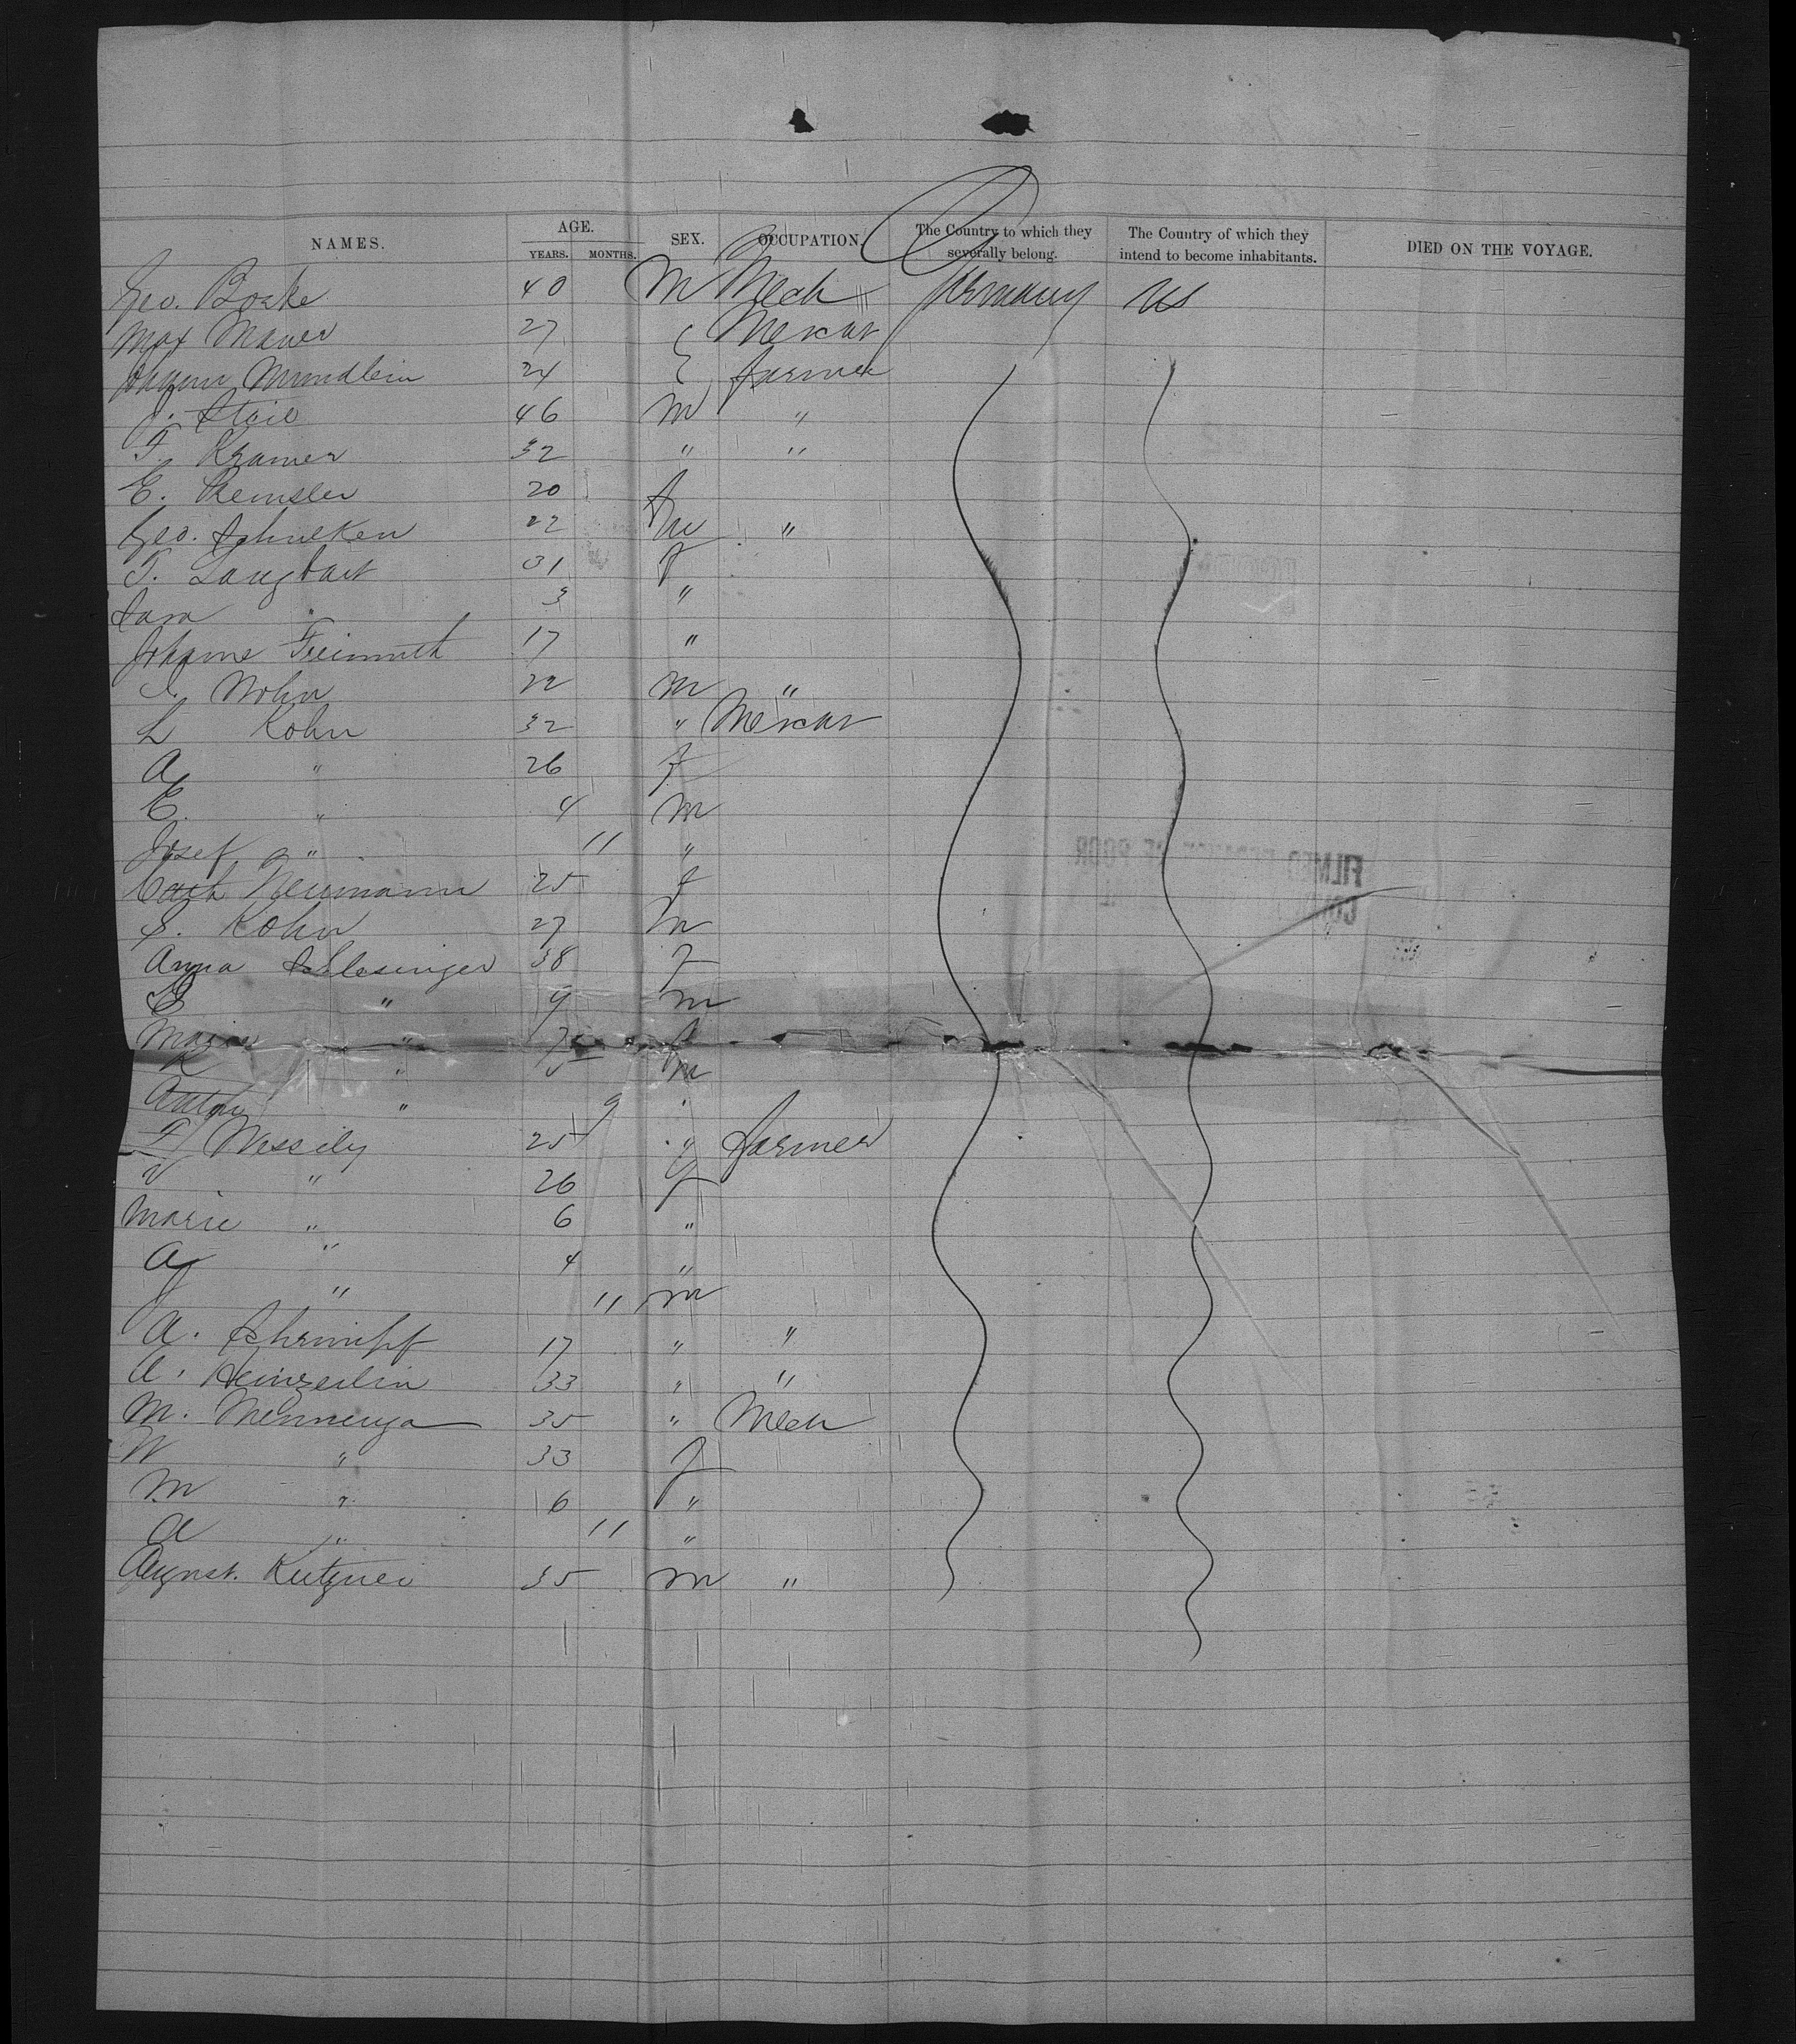 NAMES. AGE. YEARS. MONTHS. SEX. OCCUPATION. The Country to which they severally belong. The Country of which they intend to become inhabitants. DIED ON THE VOYAGE.
Geo. Boake 40 M Mech Germany US
Max Mauer 27 " Mercht
Johann Mundlein 24 " farmer
J. 46 M "
F. Kramer 32 " "
E. Remsler 20 f
Geo. Schneken 22 m "
T. Langbart 31 f
Sara 3 "
Johanne Freimuth 17 "
J. Nohn 22 m "
L Kohn 32 " Mercht
A " 26 f
E. " 4 m
Josef " 11 "
Neumann 25 f
S. Kohn 27 m
Anna Schlesinger 38 f
E " 9 m
Marie " 7 f
R " 5 m
Anton " 9 "
F Wessily 25 " farmer
V " 26 f
Marie " 6 "
A " 4 "
J " 11 m
A. Schrimpf 17 " "
A. Heinzerlin 33 " "
M. Mennenga 35 " Mech
W " 33 f
M " 6 "
A " 11 "
August. Kutzner 35 m "
FILMED BECAUSE OF POOR